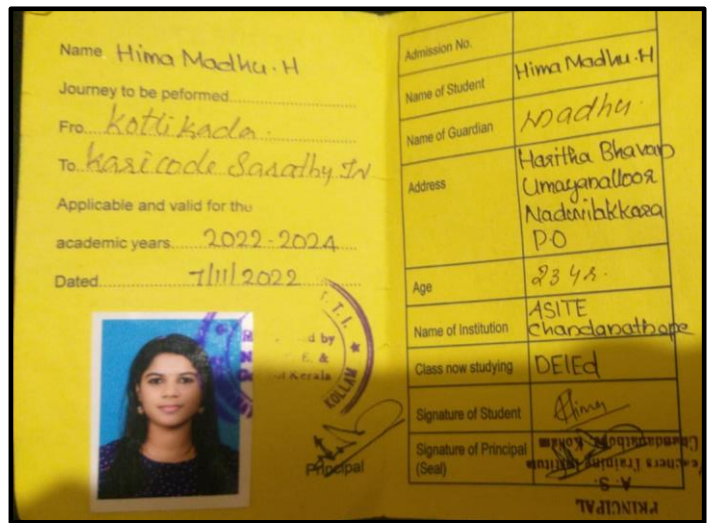 Name Hima Madhu. H
Journey to be peformed
Fro Kottikada.
To Karicode Sarathy Jn
Applicable and valid for the
academic years 2022-2024
Dated 7/11/2022
T. T. I.
d by
E. &
of Kerala
KOLLAM
Principal
Admission No.
Name of Student Hima Madhu. H
Name of Guardian Madhu.
Address Haritha Bhavan
Umayanalloor
Naduvilakkara
P.O
Age 23 yrs.
Name of Institution ASITE
Chandanathope
Class now studying DElEd
Signature of Student Hima
Signature of Principal
(Seal)
PRINCIPAL
A. S.
Teachers Training Institute
Chandanathope, Kollam